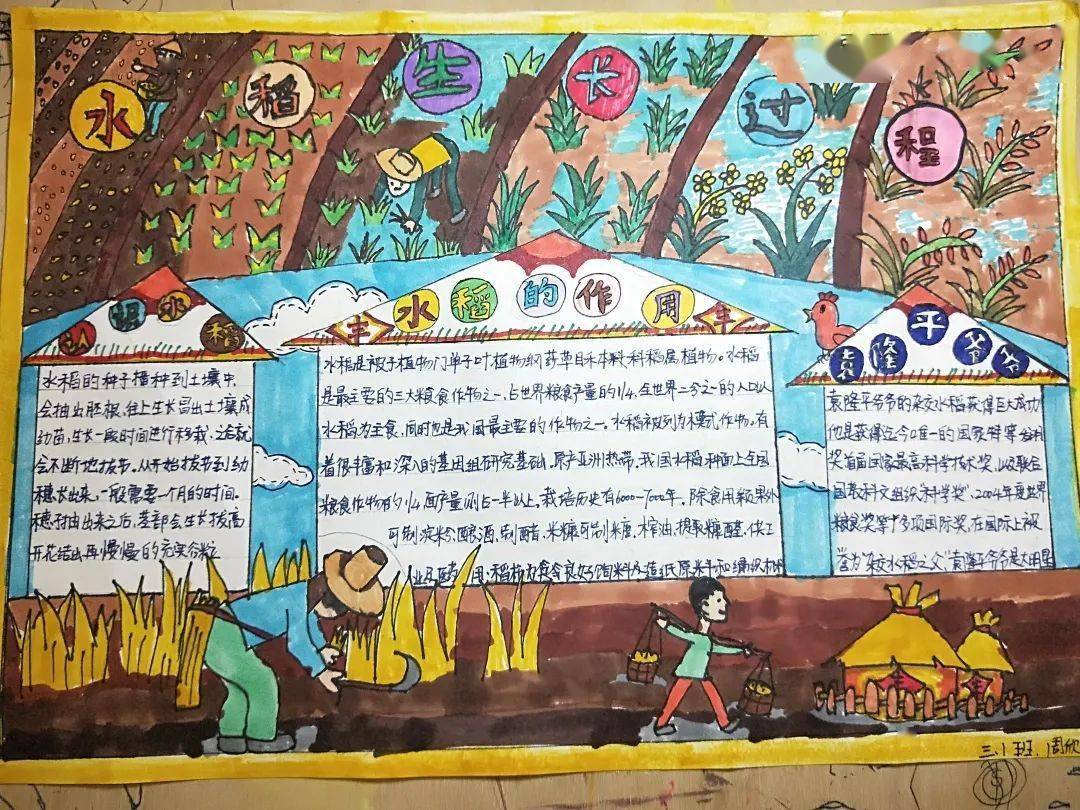 水稻生长过程
认识水稻
水稻的种子播种到土壤中
会抽出胚根,往上生长冒出土壤成
幼苗,生长一段时间进行移栽,之后就
会不断地拔节。从开始拔节到幼
穗长出来,一般需要一个月的时间。
穗子抽出来之后,茎部会生长拔高
开花结出再慢慢的充实谷粒
水稻的作用
丰
丰
水稻是被子植物门单子叶植物纲 禾本科稻属植物。水稻
是最主要的三大粮食作物之一,占世界粮食产量的1/4,全世界二分之一的人口以
水稻为主食,同时也是我国最主要的作物之一。水稻被列为模式作物。有
着很丰富和深入的基因组研究基础,原产亚洲热带,我国水稻种面上全国
粮食作物有的1/4而产量则占一半以上。栽培历史有6000~7000年。除食用颖果外
可制淀粉、酿酒、制醋,米糠可制糖、榨油、提取糠醛,供工
业及医药用;稻秆为 良好饲料及造纸原料和编织材料
袁隆平爷爷
袁隆平爷爷的杂交水稻获得巨大成功
他是获得迄今唯一的国家特等发明
奖首届国家最高科学技术奖,以及联合
国教科文组织"科学奖",2004年度世界
粮食奖等十多项国际奖,在国际上被
"誉为"杂交水稻之父",袁隆平爷爷是人
丰
丰
三、1班、周欣